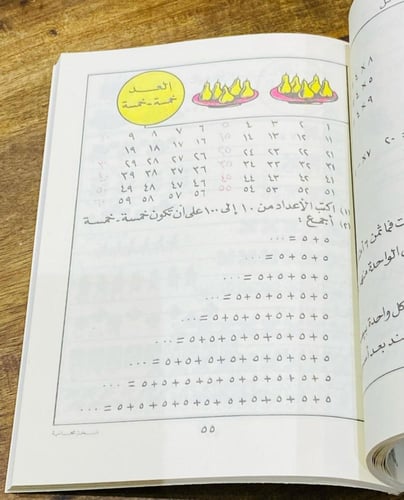 العد
خمسة - خمسة
١ ٢ ٣ ٤ ٥ ٦ ٧ ٨ ٩
١١ ١٢ ١٣ ١٤ ١٥ ١٦ ١٧ ١٨ ١٩
٢١ ٢٢ ٢٣ ٢٤ ٢٥ ٢٦ ٢٧ ٢٨ ٢٩
٣١ ٣٢ ٣٣ ٣٤ ٣٥ ٣٦ ٣٧ ٣٨ ٣٩
٤١ ٤٢ ٤٣ ٤٤ ٤٥ ٤٦ ٤٧ ٤٨ ٤٩
٥١ ٥٢ ٥٣ ٥٤ ٥٥ ٥٦ ٥٧ ٥٨ ٥٩
(١) اكتب الأعداد من ١٠ إلى ١٠٠ على أن تكون خمسة - خمسة
(٢) أجمع :
٥ + ٥ = ...
٥ + ٥ + ٥ = ...
٥ + ٥ + ٥ + ٥ = ...
٥ + ٥ + ٥ + ٥ + ٥ = ...
٥ + ٥ + ٥ + ٥ + ٥ + ٥ = ...
٥ + ٥ + ٥ + ٥ + ٥ + ٥ + ٥ = ...
٥ + ٥ + ٥ + ٥ + ٥ + ٥ + ٥ + ٥ = ...
٥ + ٥ + ٥ + ٥ + ٥ + ٥ + ٥ + ٥ + ٥ = ...
٥ + ٥ + ٥ + ٥ + ٥ + ٥ + ٥ + ٥ + ٥ + ٥ = ...
٥٥